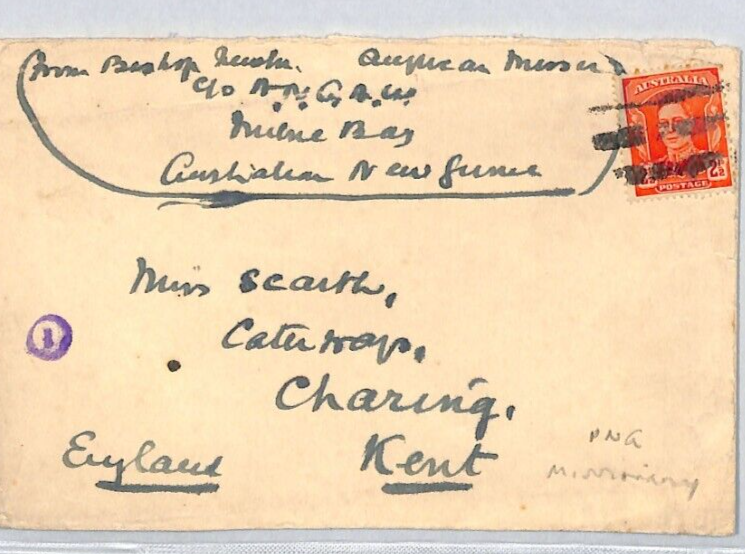 From Bishop Newton. Anglican Mission
c/o A.N.G.A.U.
Milne Bay
Australian New Guinea
AUSTRALIA
2½
POSTAGE
Miss Scarth,
1
Charing,
England Kent
PNG
Missionary